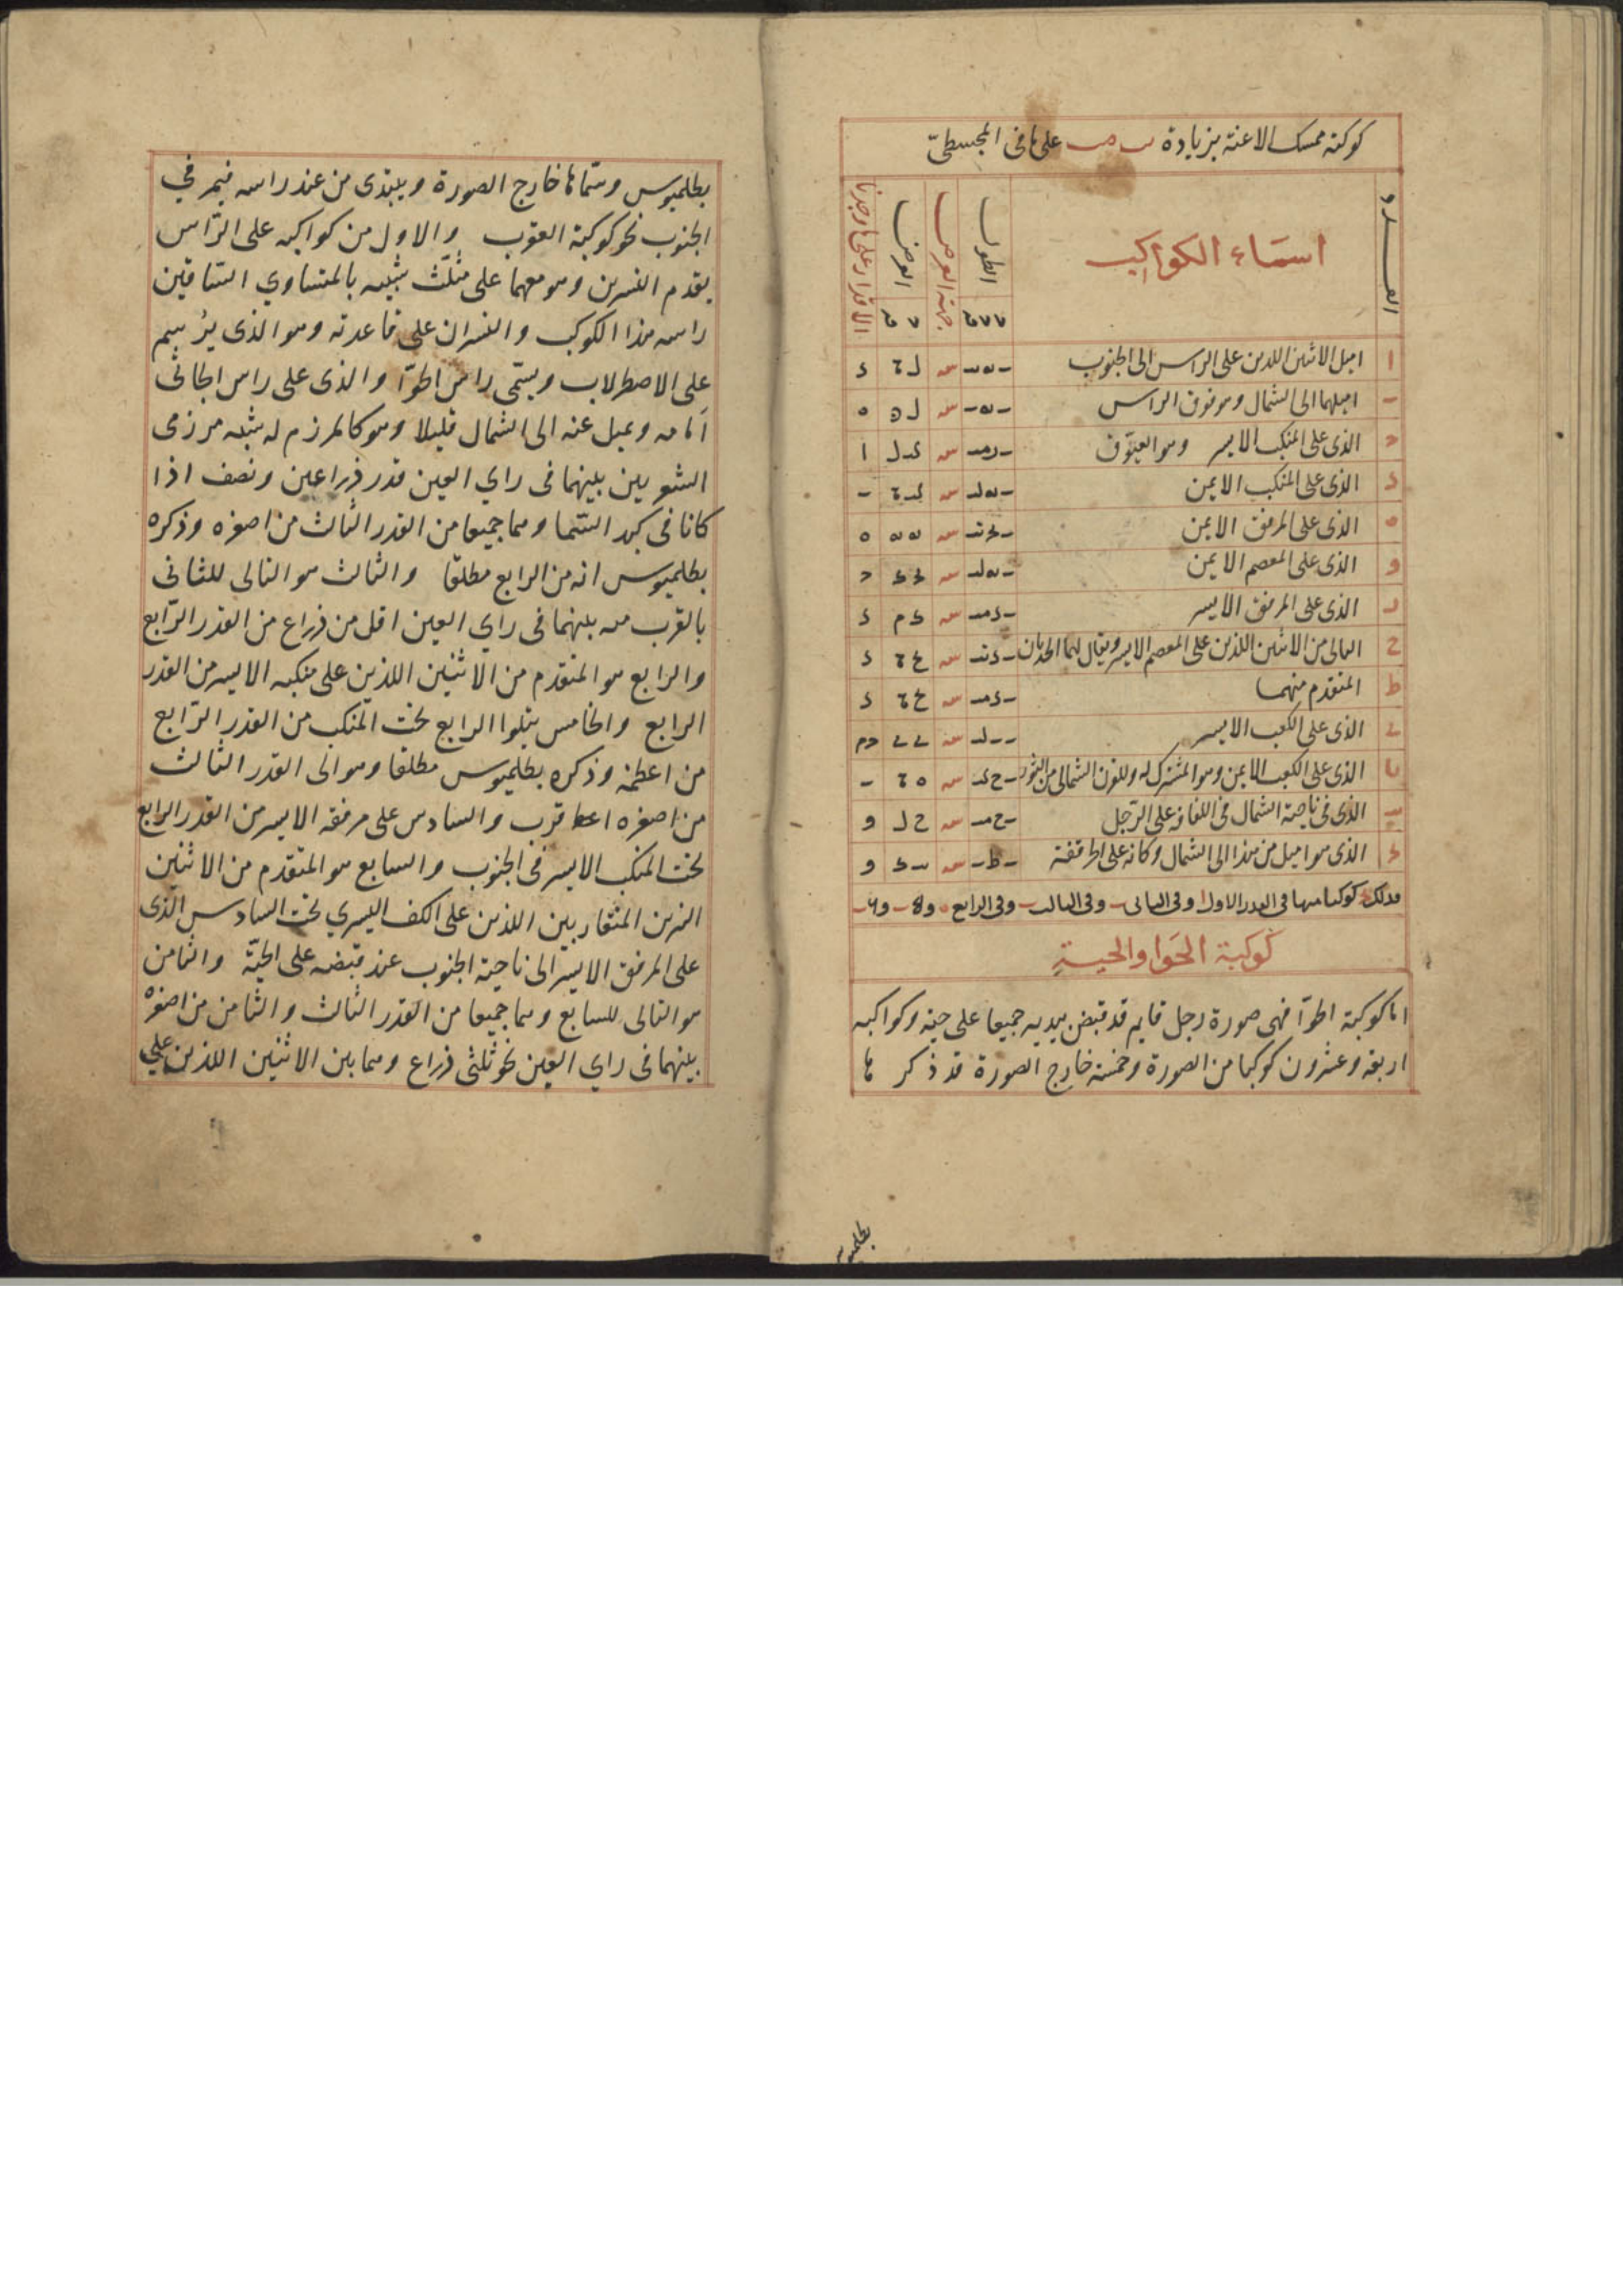 كوكبة ممسك الاعنة بزيادة على ما فى المجسطىّ
العدد
اسمَاء الكواكِب
الطول
جهة العرض
العرض
الاقدار على ما وجدنا
ا اميل الاثنين اللذين على الراس الى الجنوب
اميلهما الى الشمال وهو فوق الراس
الذى على المنكب الايسر وهو العيّوق
الذى على المنكب الايمن
الذى على المرفق الايمن
و الذى على المعصم الايمن
الذى على المرفق الايسر
ح التالى من الاثنين اللذين على المعصم الايسر ويقال لهما الجديان
ط المتقدم منهما
الذى على الكعب الايسر
الذى على الكعب الايمن وهو المشترك له وللقرن الشمالى من الثور
الذى فى ناحية الشمال فى اللفافة على الرّجل
الذى هو اميل من هذا الى الشمال وكانه على الحرقفة
فذلك كوكبا منها فى القدر الاول ا وفى الثانى وفى الثالث وفى الرابع
كوكبة الحَوا والحيةِ
اما كوكبة الحوّا فهى صورة رجل قايم قد قبض بيديه جميعا على حية وكواكبه
اربعة وعشرون كوكبا من الصورة وخمسة خارج الصورة قد ذكر ها
بطلميوس
بطلميوس وسمّاها خارج الصورة ويبتدى من عند راسه فيمر فى
الجنوب نحو كوكبة العقرب والاول من كواكبه على الرّاس
يقدم النسرين وهو معهما على مثلّث شبيه بالمتساوي السّاقين
راسه هذا الكوكب والنسران على قاعدته وهو الذى يُرسم
على الاصطرلاب ويسمّى راس الحوّا والذى على راس الجاثى
اَمامه ويميل عنه الى الشمال قليلا وهو كالمرزم له شبه مرزمى
الشعريين بينهما فى راي العين قدر ذراعين ونصف اذا
كانا فى كبد السّما وهما جميعا من القدر الثالث من اصغره وذكره
بطلميوس انه من الرابع مطلقا والثالث هو التالى للثانى
بالقرب منه بينهما فى راي العين اقل من ذراع من القدر الرّابع
والرابع هو المتقدم من الاثنين اللذين على منكبه الايسر من القدر
الرابع والخامس يتلوا الرابع تحت المنكب من القدر الرّابع
من اعظمه وذكره بطلميوس مطلقا وهو الى القدر الثالث
من اصغره اقرب والسادس على مرفقه الايسر من القدر الرابع
تحت المنكب الايسر فى الجنوب والسابع هو المتقدم من الاثنين
النيرين المتقاربين اللذين على الكف اليسري تحت السادس الذى
على المرفق الايسر الى ناحية الجنوب عند قبضه على الحيّة والثامن
هو التالى للسابع وهما جميعا من القدر الثالث والثامن من اصغره
بينهما فى راي العين نحو ثلثى ذراع وهما بين الاثنين اللذين على